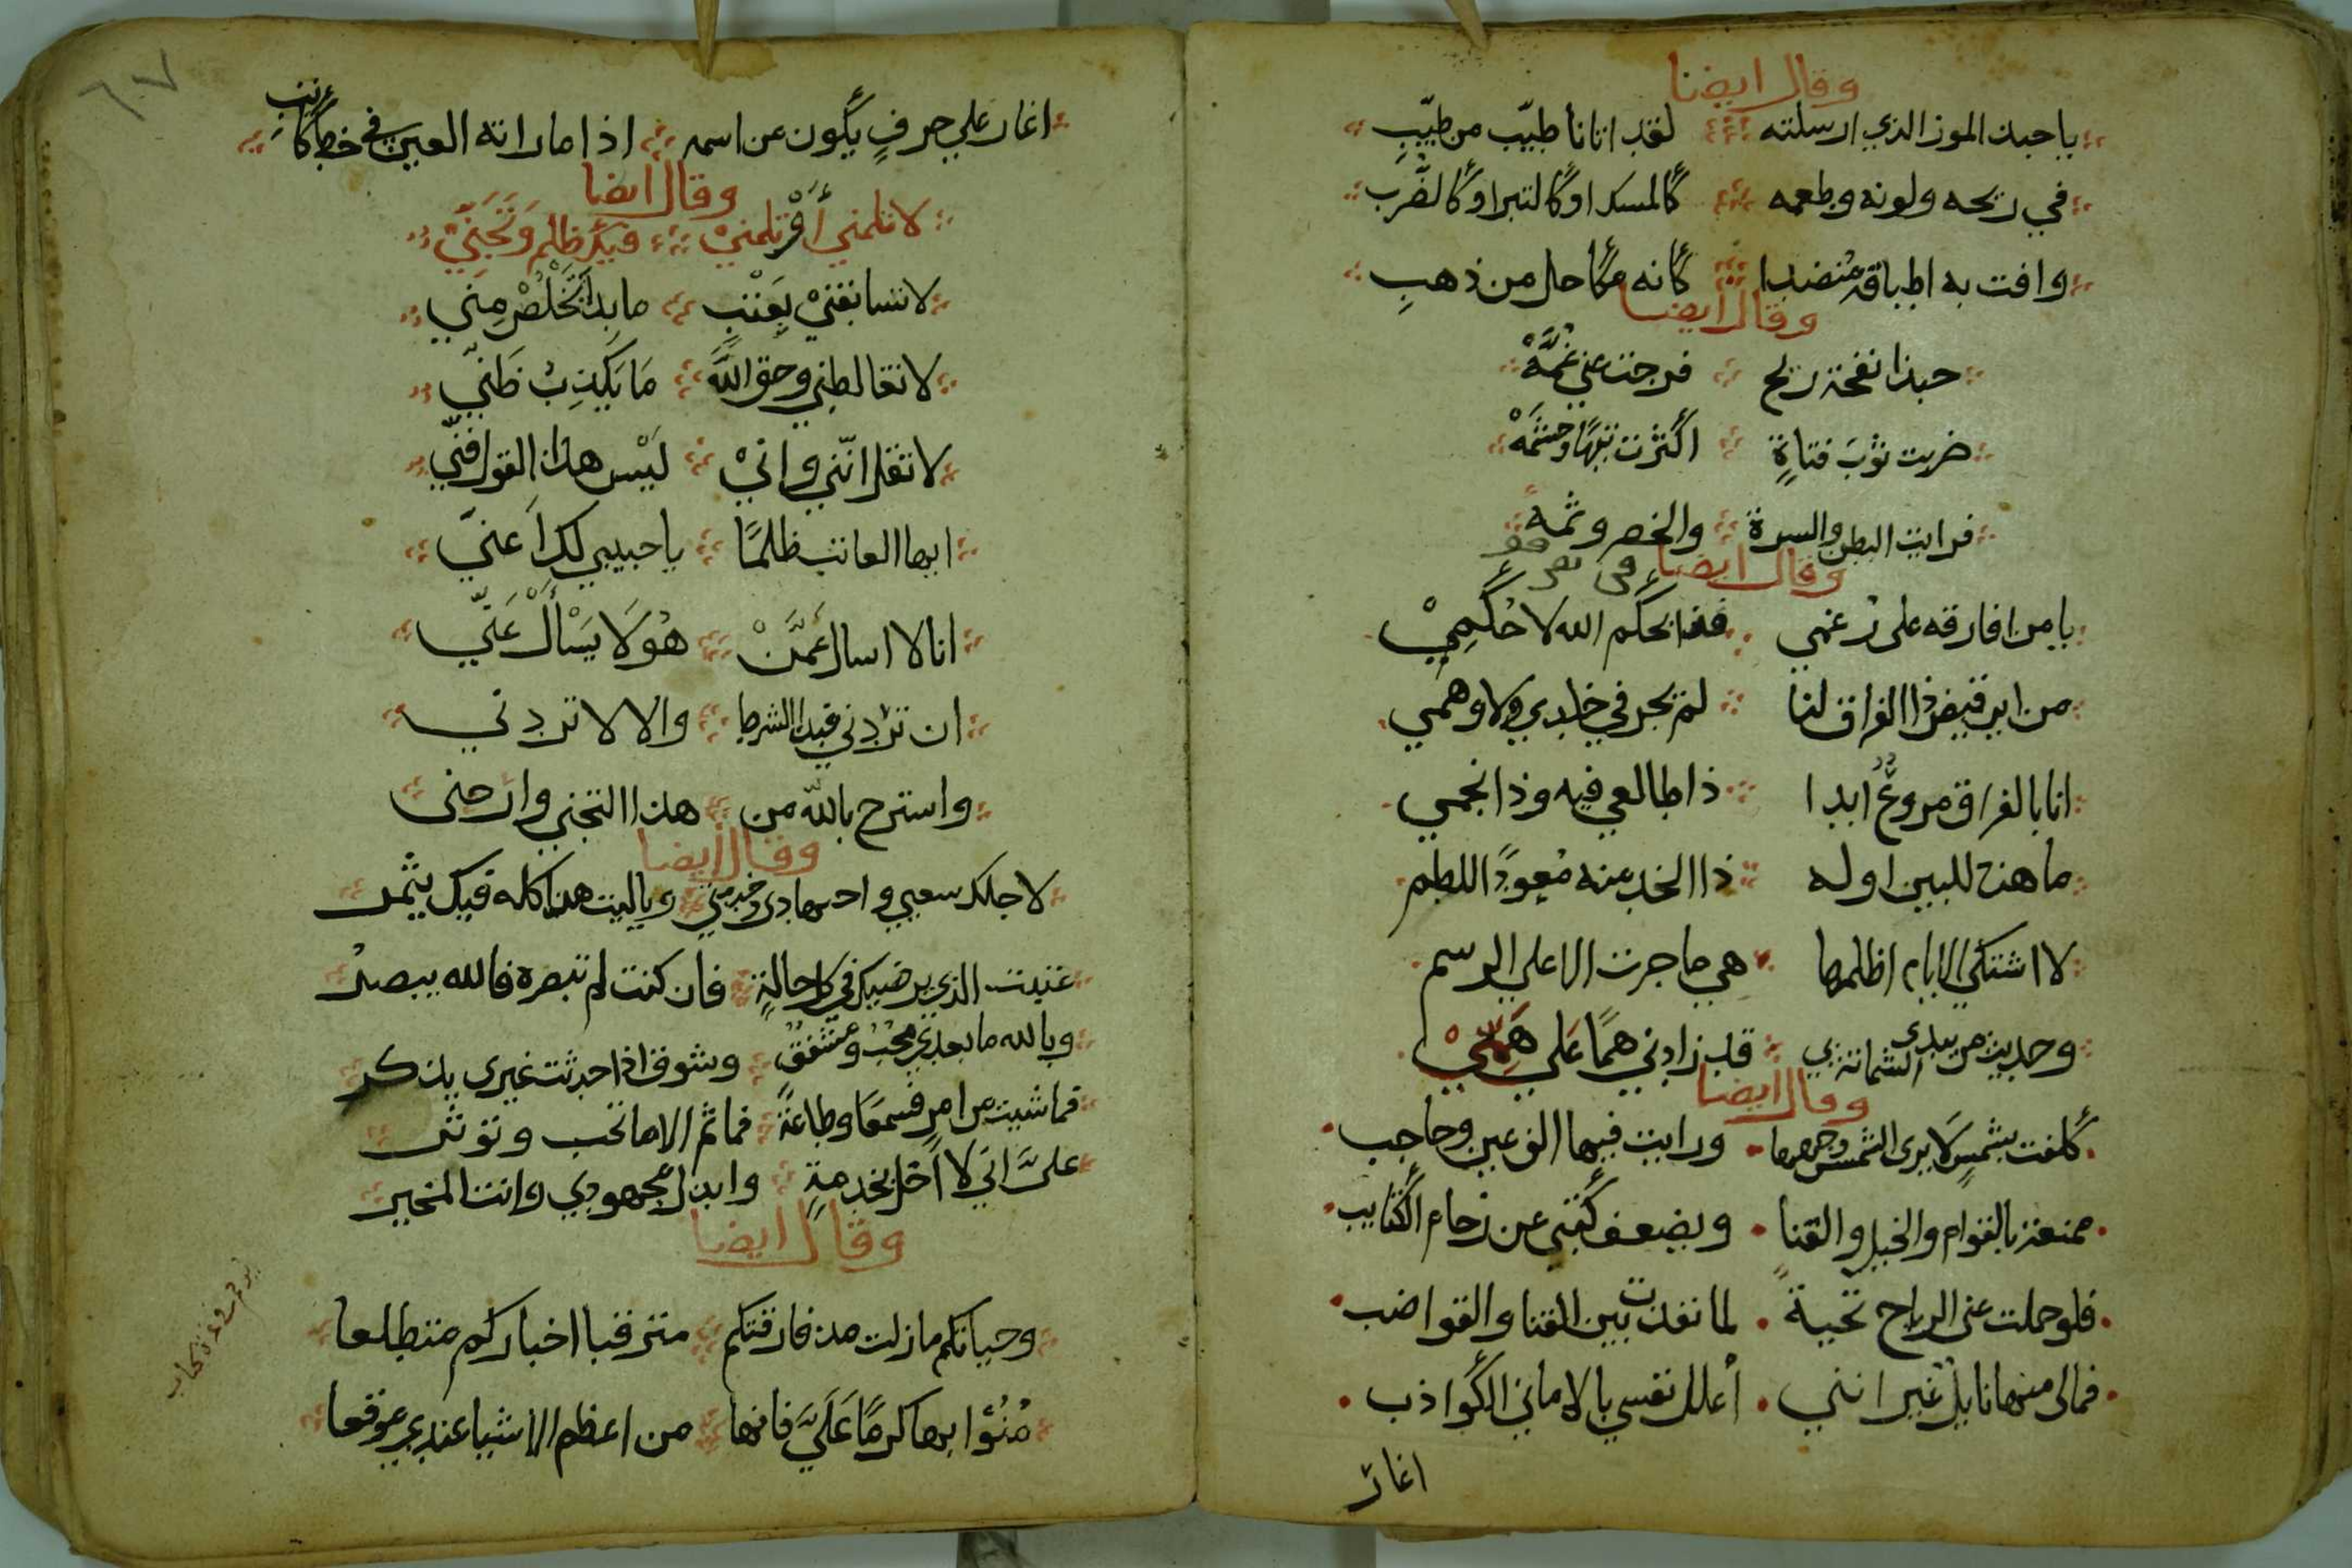 وقال ايضا
يا حبذا الموز الذي ارسلته لقد اتانا طيّب من طيّبِ
في ريحه ولونه وطعمه كالمسك او كالتبر او كالضّرب
وافت به اطباقه مُنضدا كانه مكاحل من ذهبِ
وقال ايضا
حبذا نفحة ريح فرجت عني غُمَّهْ
ضربت ثوْبَ فتاةٍ اكثرت تيهًا وحشمَهْ
فرايت البطن والسرة والخصر وثمه
وقال ايضا
يا من افارقه على رغمي فقد ابحكم الله لا حُكمِيْ
من اين قيض ذا الفراق لنا لم يجر في خلدي ولا وهمي
انا بالفراق مروعٌ ابدا ذا طالعي فيه وذا نجمي
ما هذه للبين اوله ذا الخد منه مُعودً اللطم
لا اشتكي الايام اظلمها هي ما جرت الا علي الرسم
وحديث من يبدى الشماتة بي قد زادني همًا عَلي هَمّيْ
وقال ايضا
كلفت بشمسٍ لا يرى الشمس وجهها ورايت فيها الف عين وحاجب
ممنعة بالقوام والخيل والقنا ويضعف كتبي عن زحام الكتايب
فلو حملت عني الرياح تحيةً لما نفذت بين القنا والقواضب
فمالى منها نايلٌ غير انني أعلل نفسي بالاماني الكواذب
اغار
اغار علي حرفٍ يكون من اسمه اذا ما راته العين في خط كاتبِ
وقال ايضا
لا تلمني أوْ تلمنيْ فيك ظلم وَتَجَنّيْ
لا تسابقنيْ بِعَتْبٍ ما بذا تَخْلُصْ مِنّي
لا تغالطني وحق اللّٰه مَا يَكذِبُ ظَنّي
لا تقل انّني وانيْ لَيْس هذا القول فنّي
ايها العاتب ظلمًا يا حبيبي لك اَعنيّ
انا لا اسال عَمَّنْ هُوَ لَا يَسْألْ عَنّي
ان تزدني فبذا الشرط والا لا تزدني
واسترح باللّٰه من هذا التجني وارحنى
وقال ايضا
لاجلك سعيي واجتهادى وخدمتي ويا ليت هذا كله فيك يثمر
عنيت الذي يرضيك في كل حالةٍ فان كنت لم تبصره فالله يبصرُ
وبالله ما بعدي محبٌ ومشفقٌ وسوف اذا حدثت غيرى يذكر
فما شيت من امرٍ فسمعًا وطاعةً فما ثم الا ما تحب وتوثر
عليَّ اني لا اخل بخدمةٍ وابذل مجهودي وانت المخير
وقال ايضا
وحياتكم ما زلت مذ فارقتكم مترقبا اخباركم متطلعا
مُنُوا بها كرمًا عَلَيَّ فانها من اعظم الاشيا عندي موقعا